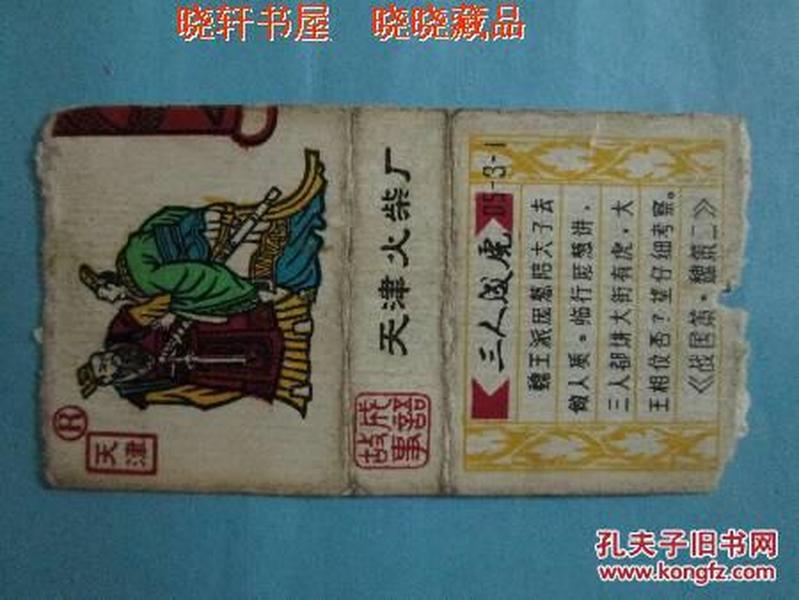 晓轩书屋 晓晓藏品
R
天津
天津火柴厂
成语故事
三人成虎 05-3-1
魏王派庞葱陪太子去
做人质。临行庞葱讲，
三人都讲大街有虎，大
王相信否？望仔细考察。
《战国策·魏策二》
孔夫子旧书网
www.kongfz.com